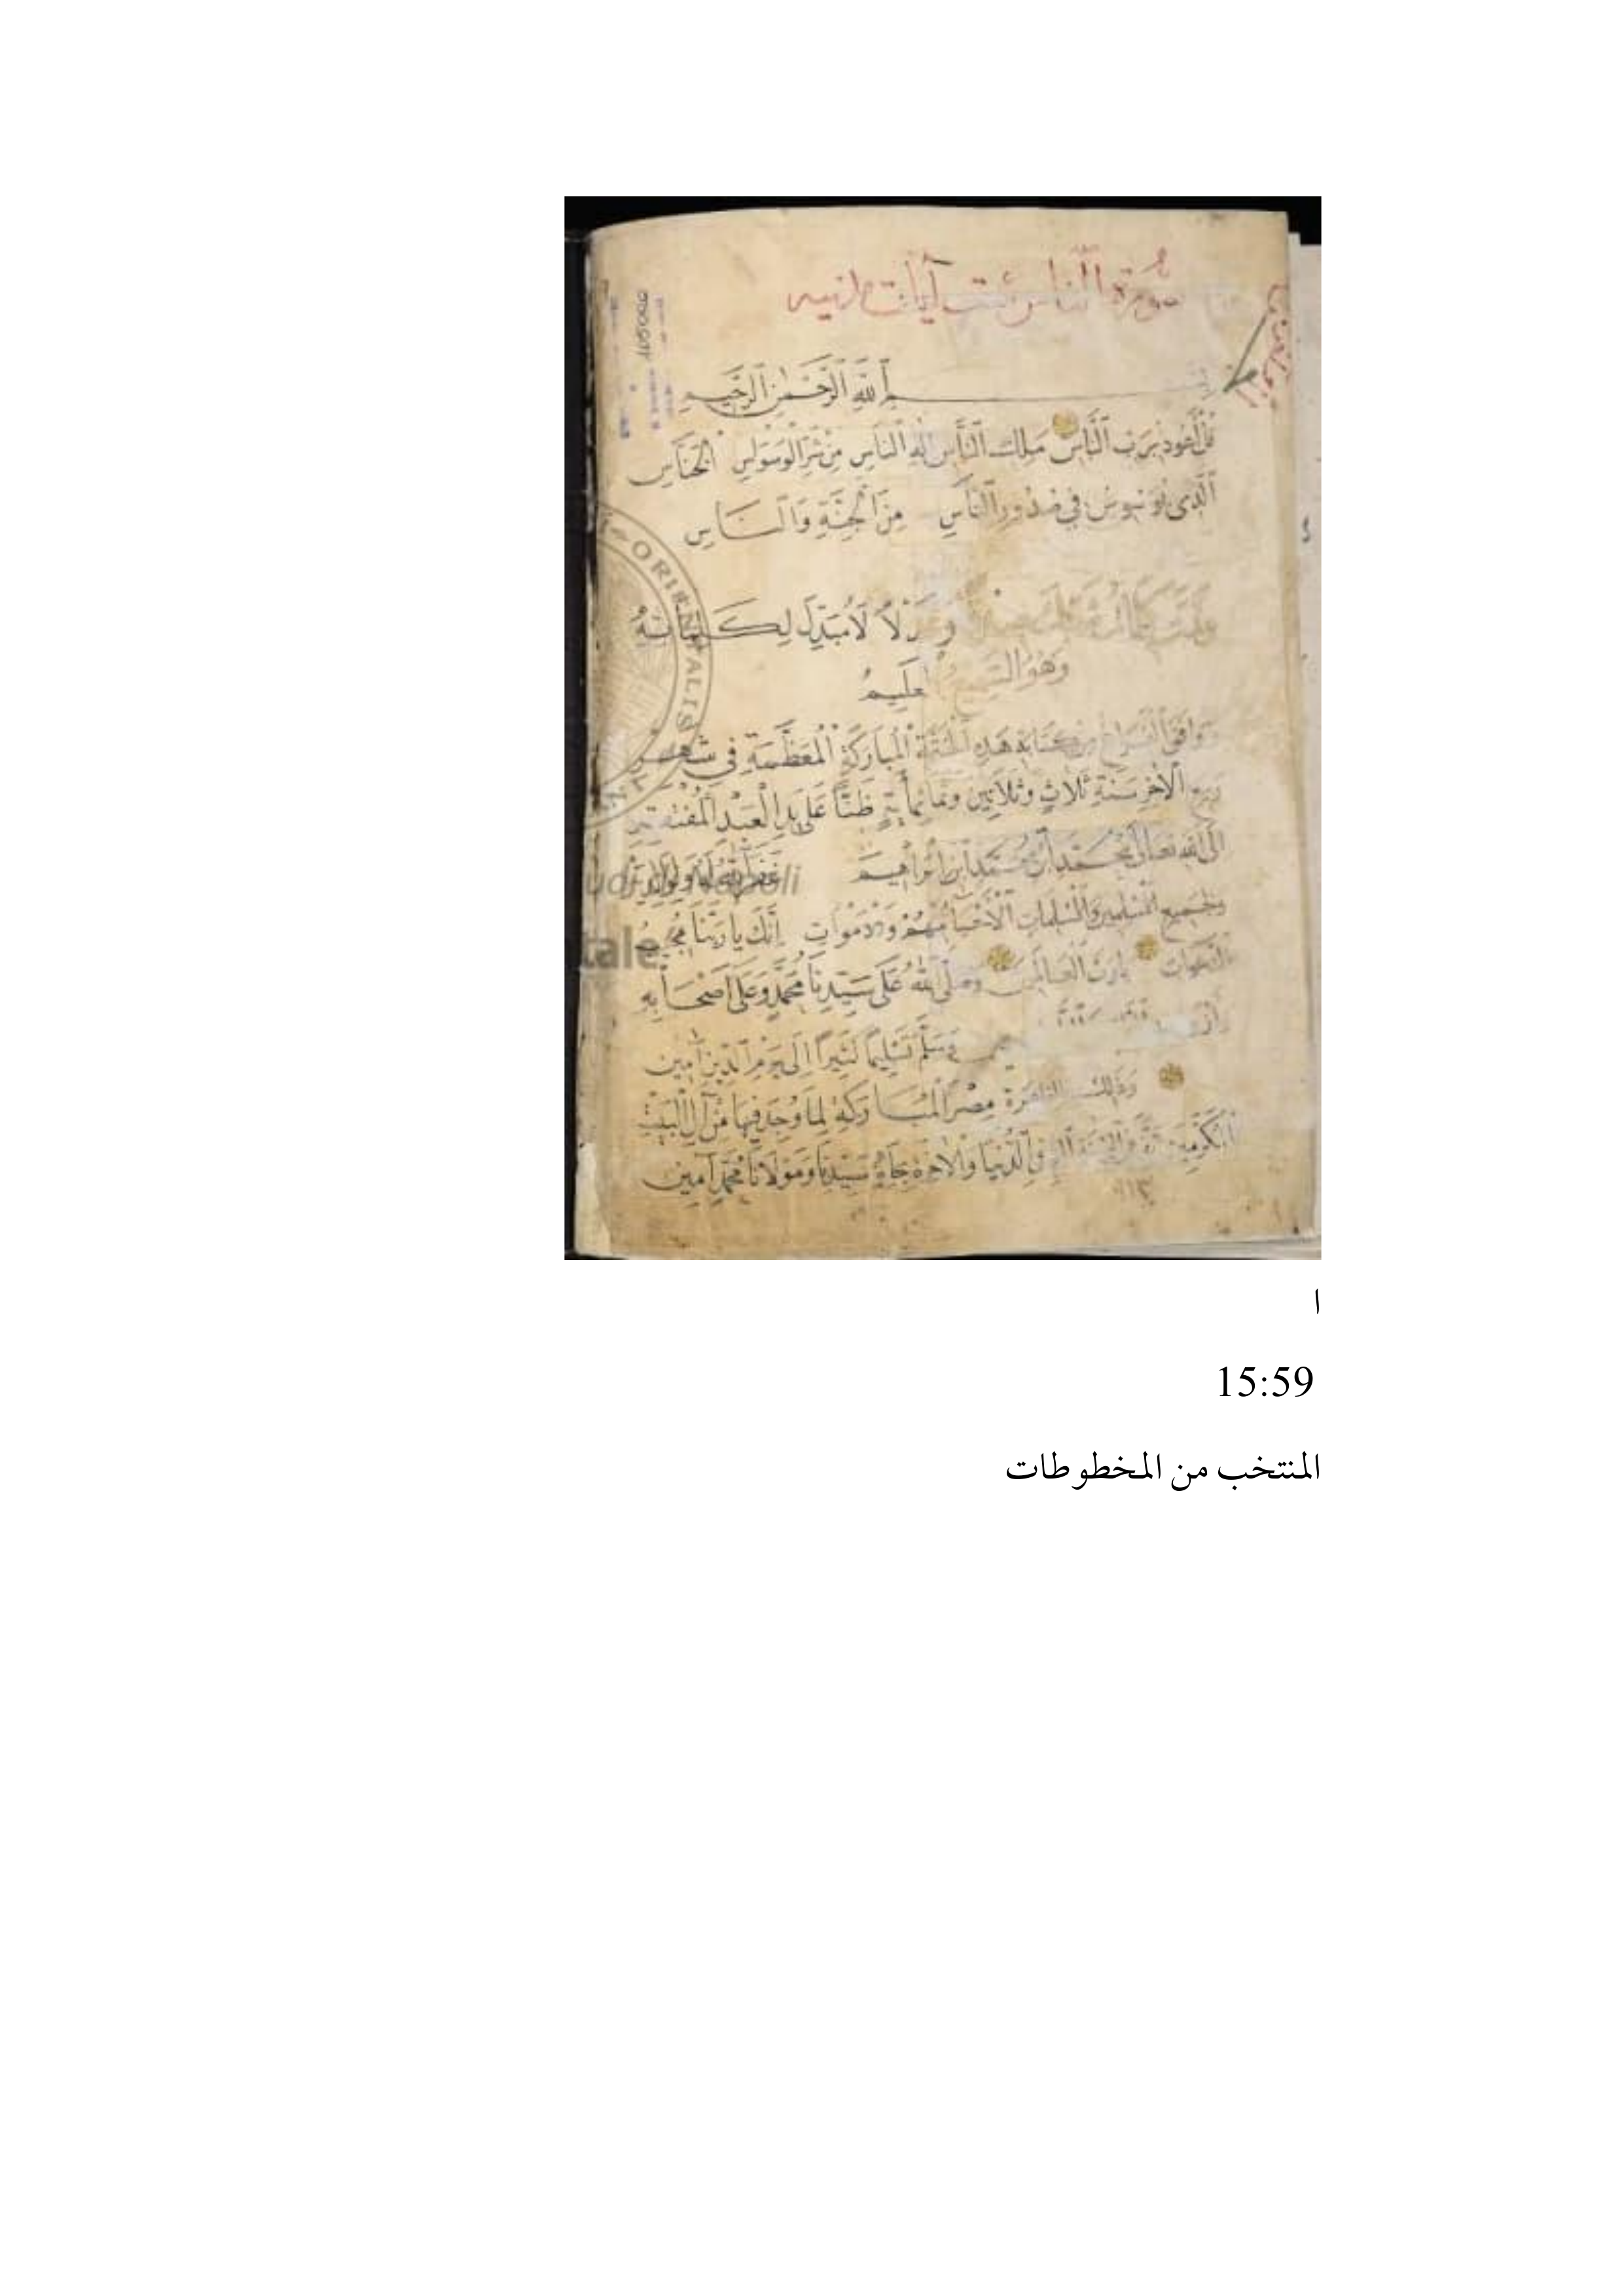 سورة الناس ست آيات مدنيه
بسم الله الرحمن الرحيم
قل أعوذ برب الناس ملك الناس إله الناس من شر الوسواس الخناس
الذى يوسوس في صدور الناس من الجنة والناس
وتمت كلمات ربك صدقا وعدلا لا مبدل لكلماته
وهو السميع العليم
ووافق الفراغ من كتابة هذه الختمة المباركة المعظمة في شهر
ربيع الآخر سنة ثلاث وثلاثين وثمانمأية على يد العبد المفتقر
الى الله تعالى محمد ابن محمد ابن ابراهيم غفر الله له ولوالديه
ولجميع المسلمين والمسلمات الأحياء منهم والاموات إنك يا ربنا مجيب
الدعوات يا رب العالمين وصلى الله على سيدنا محمد وعلى أصحابه
وسلم تسليما كثيرا إلى يوم الدين آمين
وذلك القاهرة مصر المباركة لما وجد فيها من آل البيت
المكرمين في الدنيا والآخرة بجاه سيدنا ومولانا محمد آمين
ORIENTALIS
Napoli
tale
ا
15:59
المنتخب من المخطوطات